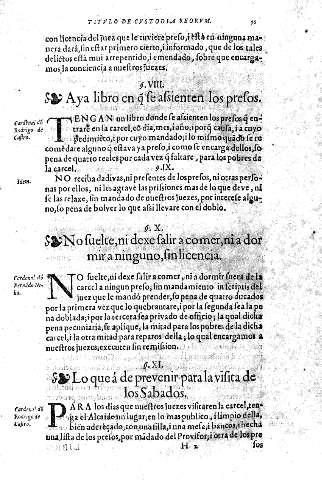 TITVLO DE CVSTODIA REORVM.
con licencia del juez que le tuviere preso, i està tã ninguna ma
nera darà, sin estar primero cierto, i informado, que de los tales
delictos està mui arrepentido, i emendado, sobre que encarga-
mos la conciencia a nuestros juezes.
§. VIII.
Aya libro en q̃ se assienten los presos.
Cardenal dõ
Rodrigo de
Castro.
TENGAN un libro donde se assienten los presos q̃ en
trarẽ en la carcel, el dia, mes, i año, i porq̃ causa, i a cuyo
pedimiẽto, i por cuyo mandado; i lo mismo quãdo se en
comẽdare alguno q̃ estava ya preso, i como se encarga dellos, so
pena de quatro reales por cada vez q̃ faltare, para los pobres de
la carcel.
§. IX.
Idem.
NO reciba dadivas, ni presentes de los presos, ni otras perso-
nas por ellos, ni les agrave las prisiones mas de lo que deve, ni
se las relaxe, sin mandado de nuestros juezes, por interesse algu-
no, so pena de bolver lo que assi llevare con el doblo.
§. X.
No suelte, ni dexe salir a comer, ni a dor
mir a ninguno, sin licencia.
Cardenal dõ
NO suelte, ni dexe salir a comer, ni a dormir fuera de la
carcel a ningun preso; sin mandamiento in scriptis del
juez que le mandò prender, so pena de quatro ducados
por la primera vez que lo quebrantare, i por la segunda sea la pe
na doblada; i por la tercera sea privado de officio; la qual dicha
pena pecuniaria, se aplique, la mitad para los pobres de la dicha
carcel, i la otra mitad para reparos della; lo qual encargamos a
nuestros juezes, executen sin remission.
§. XI.
Lo que à de prevenir para la visita de
los Sabados.
Cardenal dõ
Rodrigo de
Castro.
PARA los dias que nuestros juezes visitaren la carcel, ten-
ga el Alcaide un lugar, en lo mas publico, i limpio della,
bien adereçado, con una silla, i una mesa, i bancos, i hecha
una lista de los presos, por mãdado del Provisor, i otra de los pre
H 2
sos